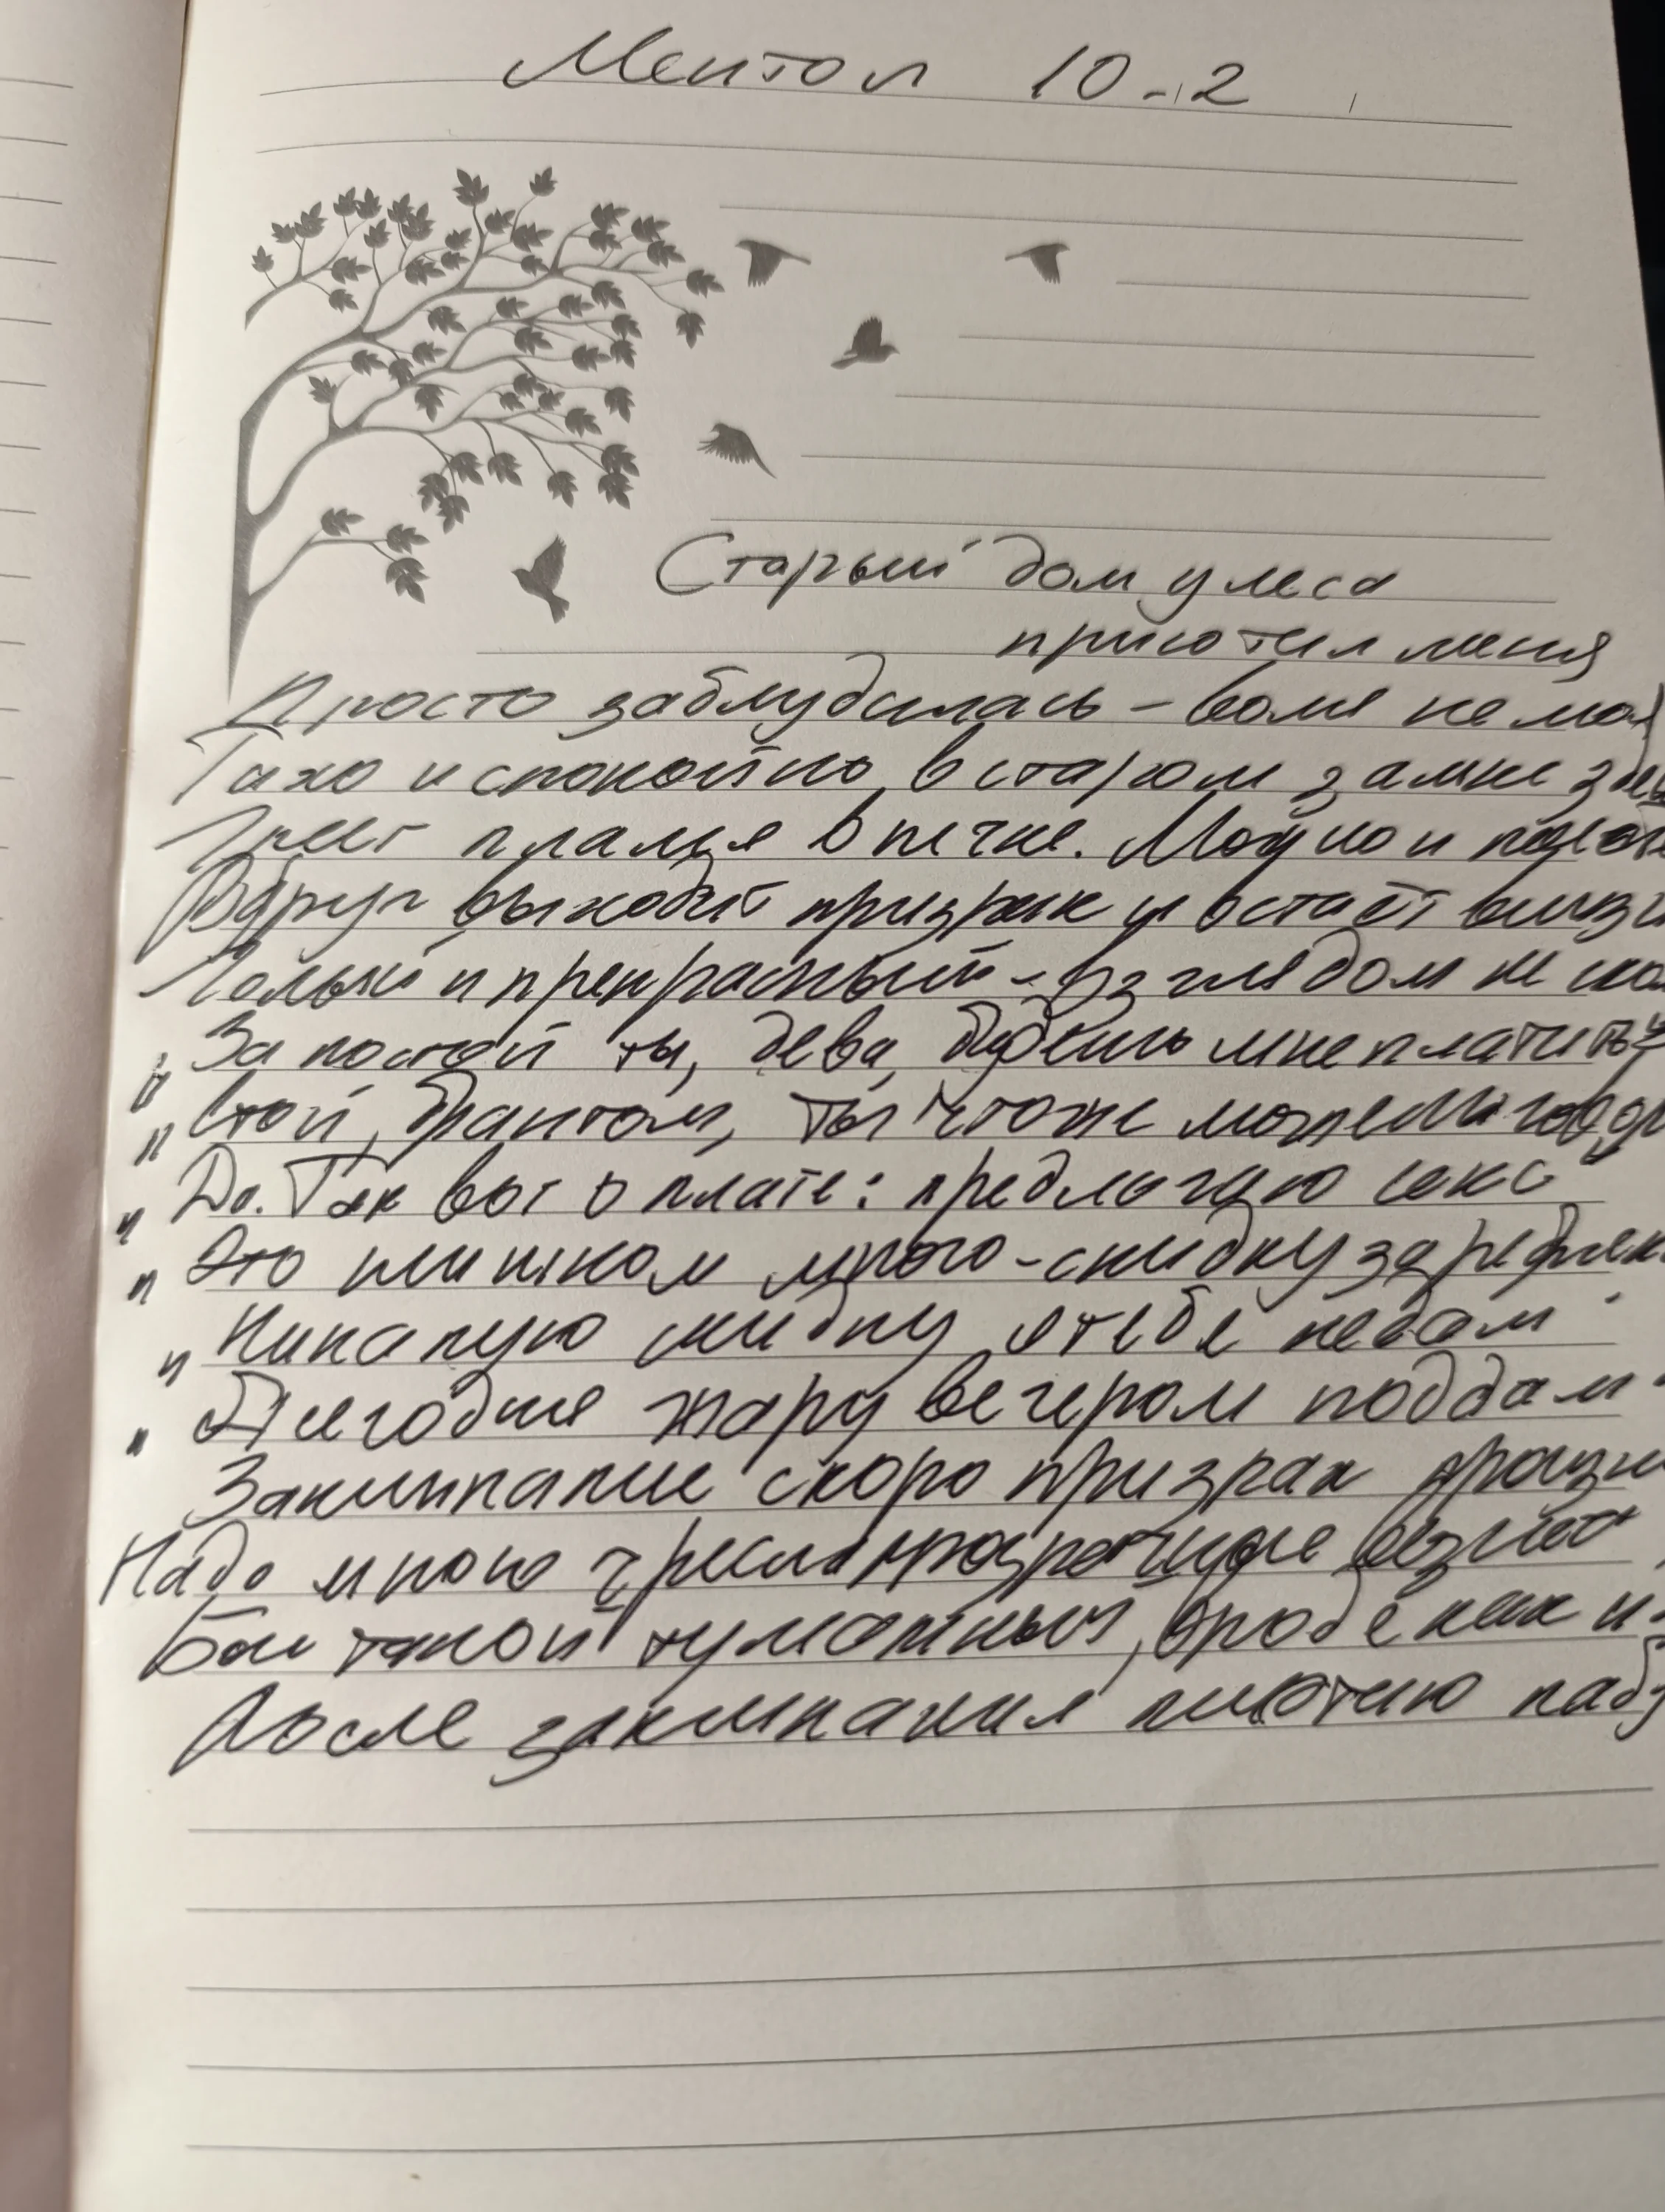 Ментол 10-2
Старый дом у леса
приютил меня
Просто заблудилась – воля не моя
Тихо и спокойно в старом замке здесь
Греет пламя в печке. Можно и
Вдруг выходит призрак и встаёт
Голый и прекрасный - взглядом не
„За постой ты, дева, будешь мне платить"
„Стой, фантом, ты что же можешь
„Да. Так вот о плате: предлагаю секс"
„Это слишком много - скидку за
„Никакую скидку я тебе не дам"
„Я сегодня жару вечером поддам"
Заклинание скоро призрак
Надо мною чресла
Был такой туманный, вроде как и
После заклинания плотию